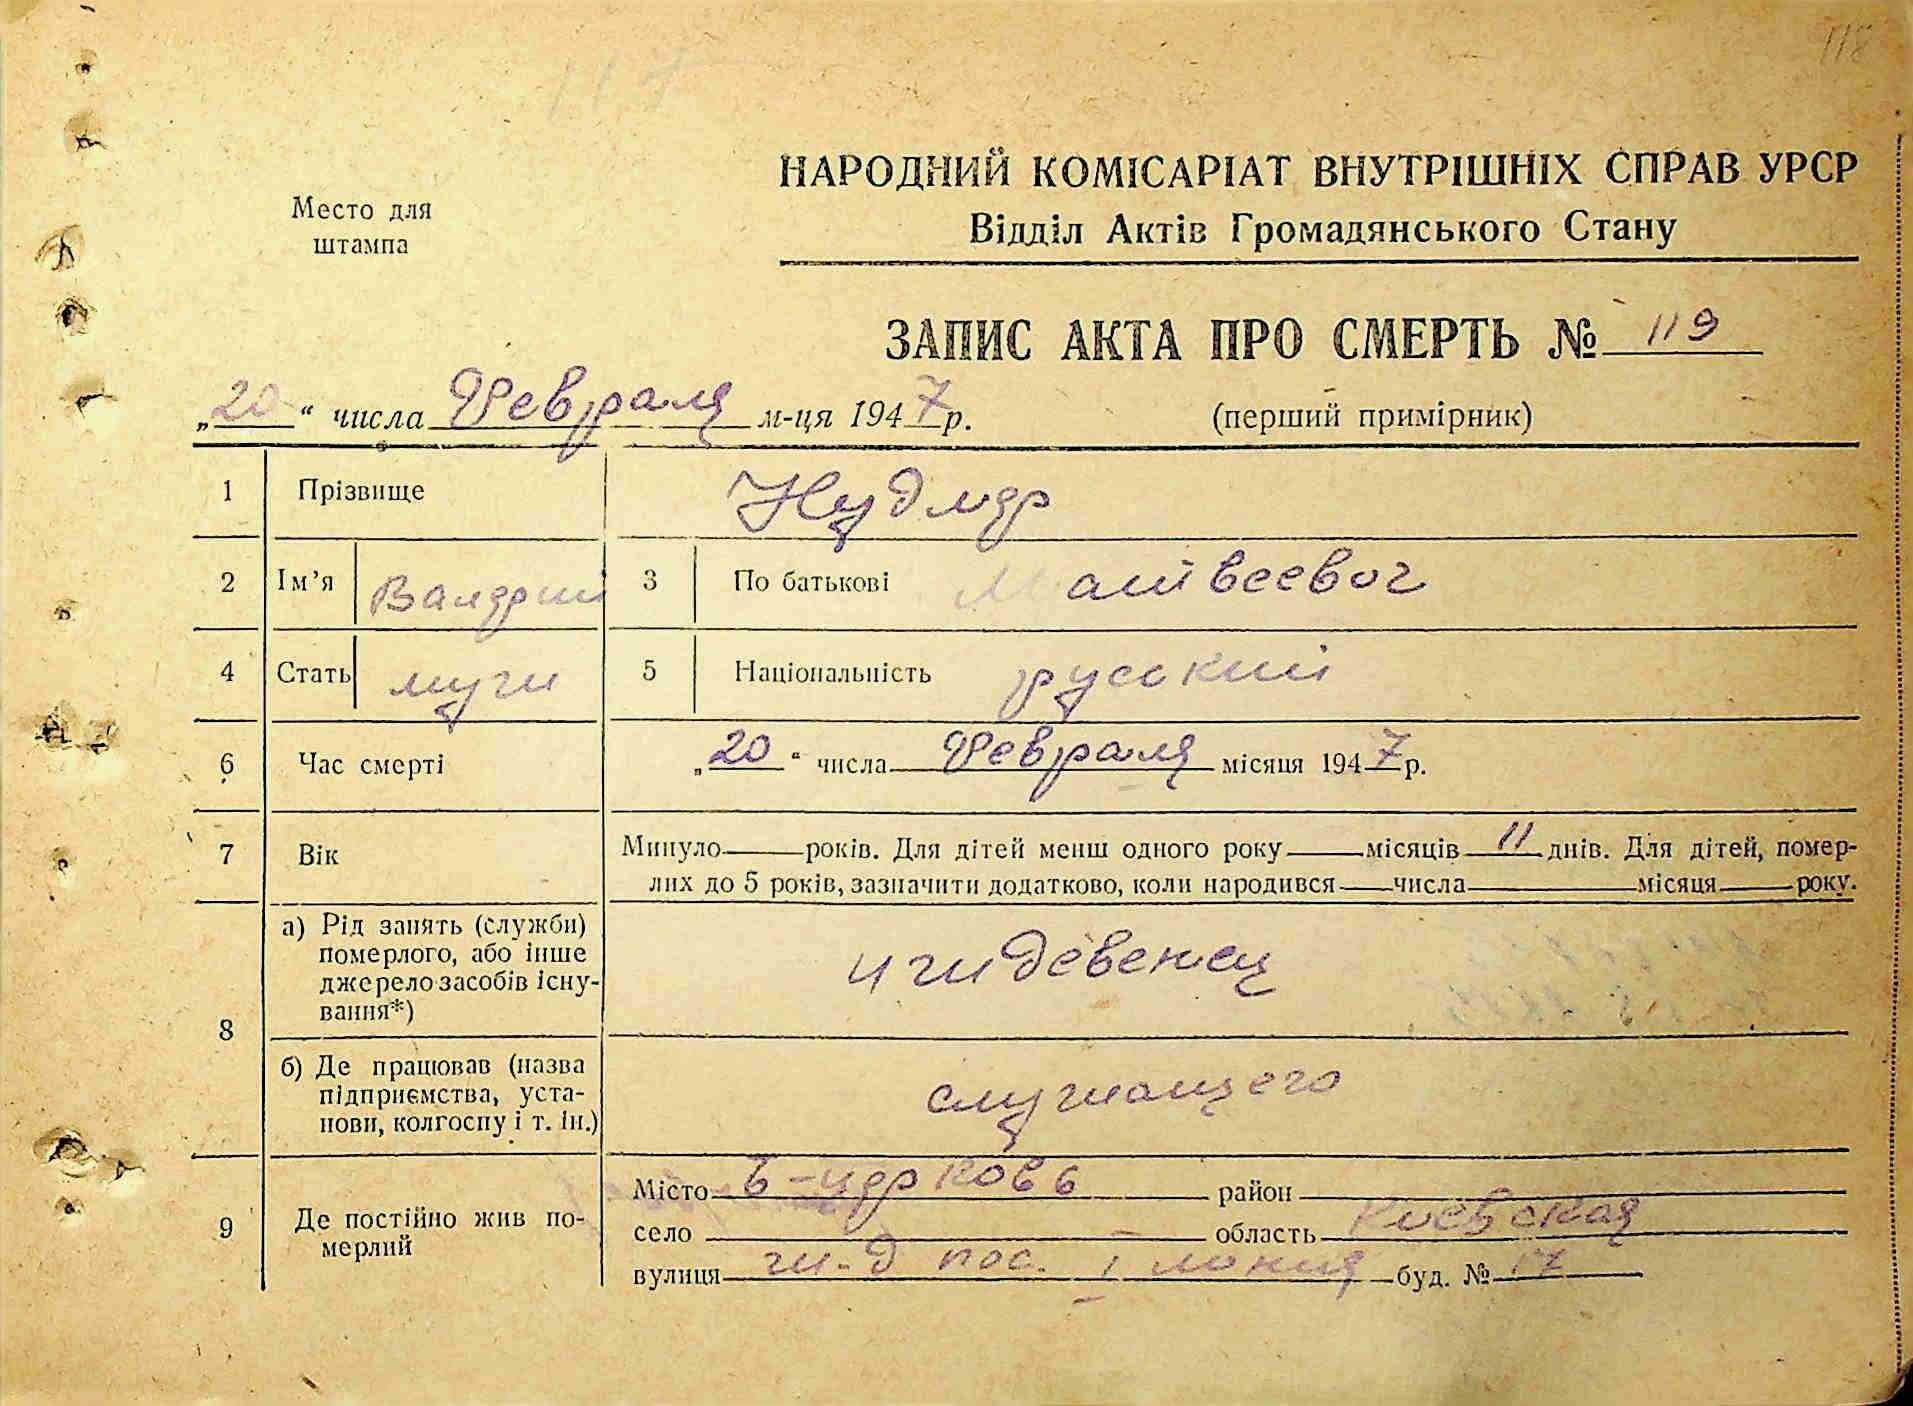 118
117
НАРОДНИЙ КОМІСАРІАТ ВНУТРІШНІХ СПРАВ УРСР
Відділ Актів Громадянського Стану
Место для
штампа
ЗАПИС АКТА ПРО СМЕРТЬ № 119
„20“ числа Февраля м-ця 1947 р.
(перший примірник)
1 Прізвище Нудлер
2 Ім’я Валерий 3 По батькові Матвеевич
4 Стать муж 5 Національність русский
6 Час смерті „20“ числа Февраля місяця 1947 р.
7 Вік Минуло — років. Для дітей менш одного року — місяців 11 днів. Для дітей, помер-
лих до 5 років, зазначити додатково, коли народився — числа — місяця — року.
8 а) Рід занять (служби)
померлого, або інше
джерело засобів існу-
вання*)
иждевенец
б) Де працював (назва
підприємства, уста-
нови, колгоспу і т. ін.)
служащего
9 Де постійно жив по-
мерлий
Місто Б-церковь район
село область Киевская
вулиця ж-д пос. I линия буд. № 17